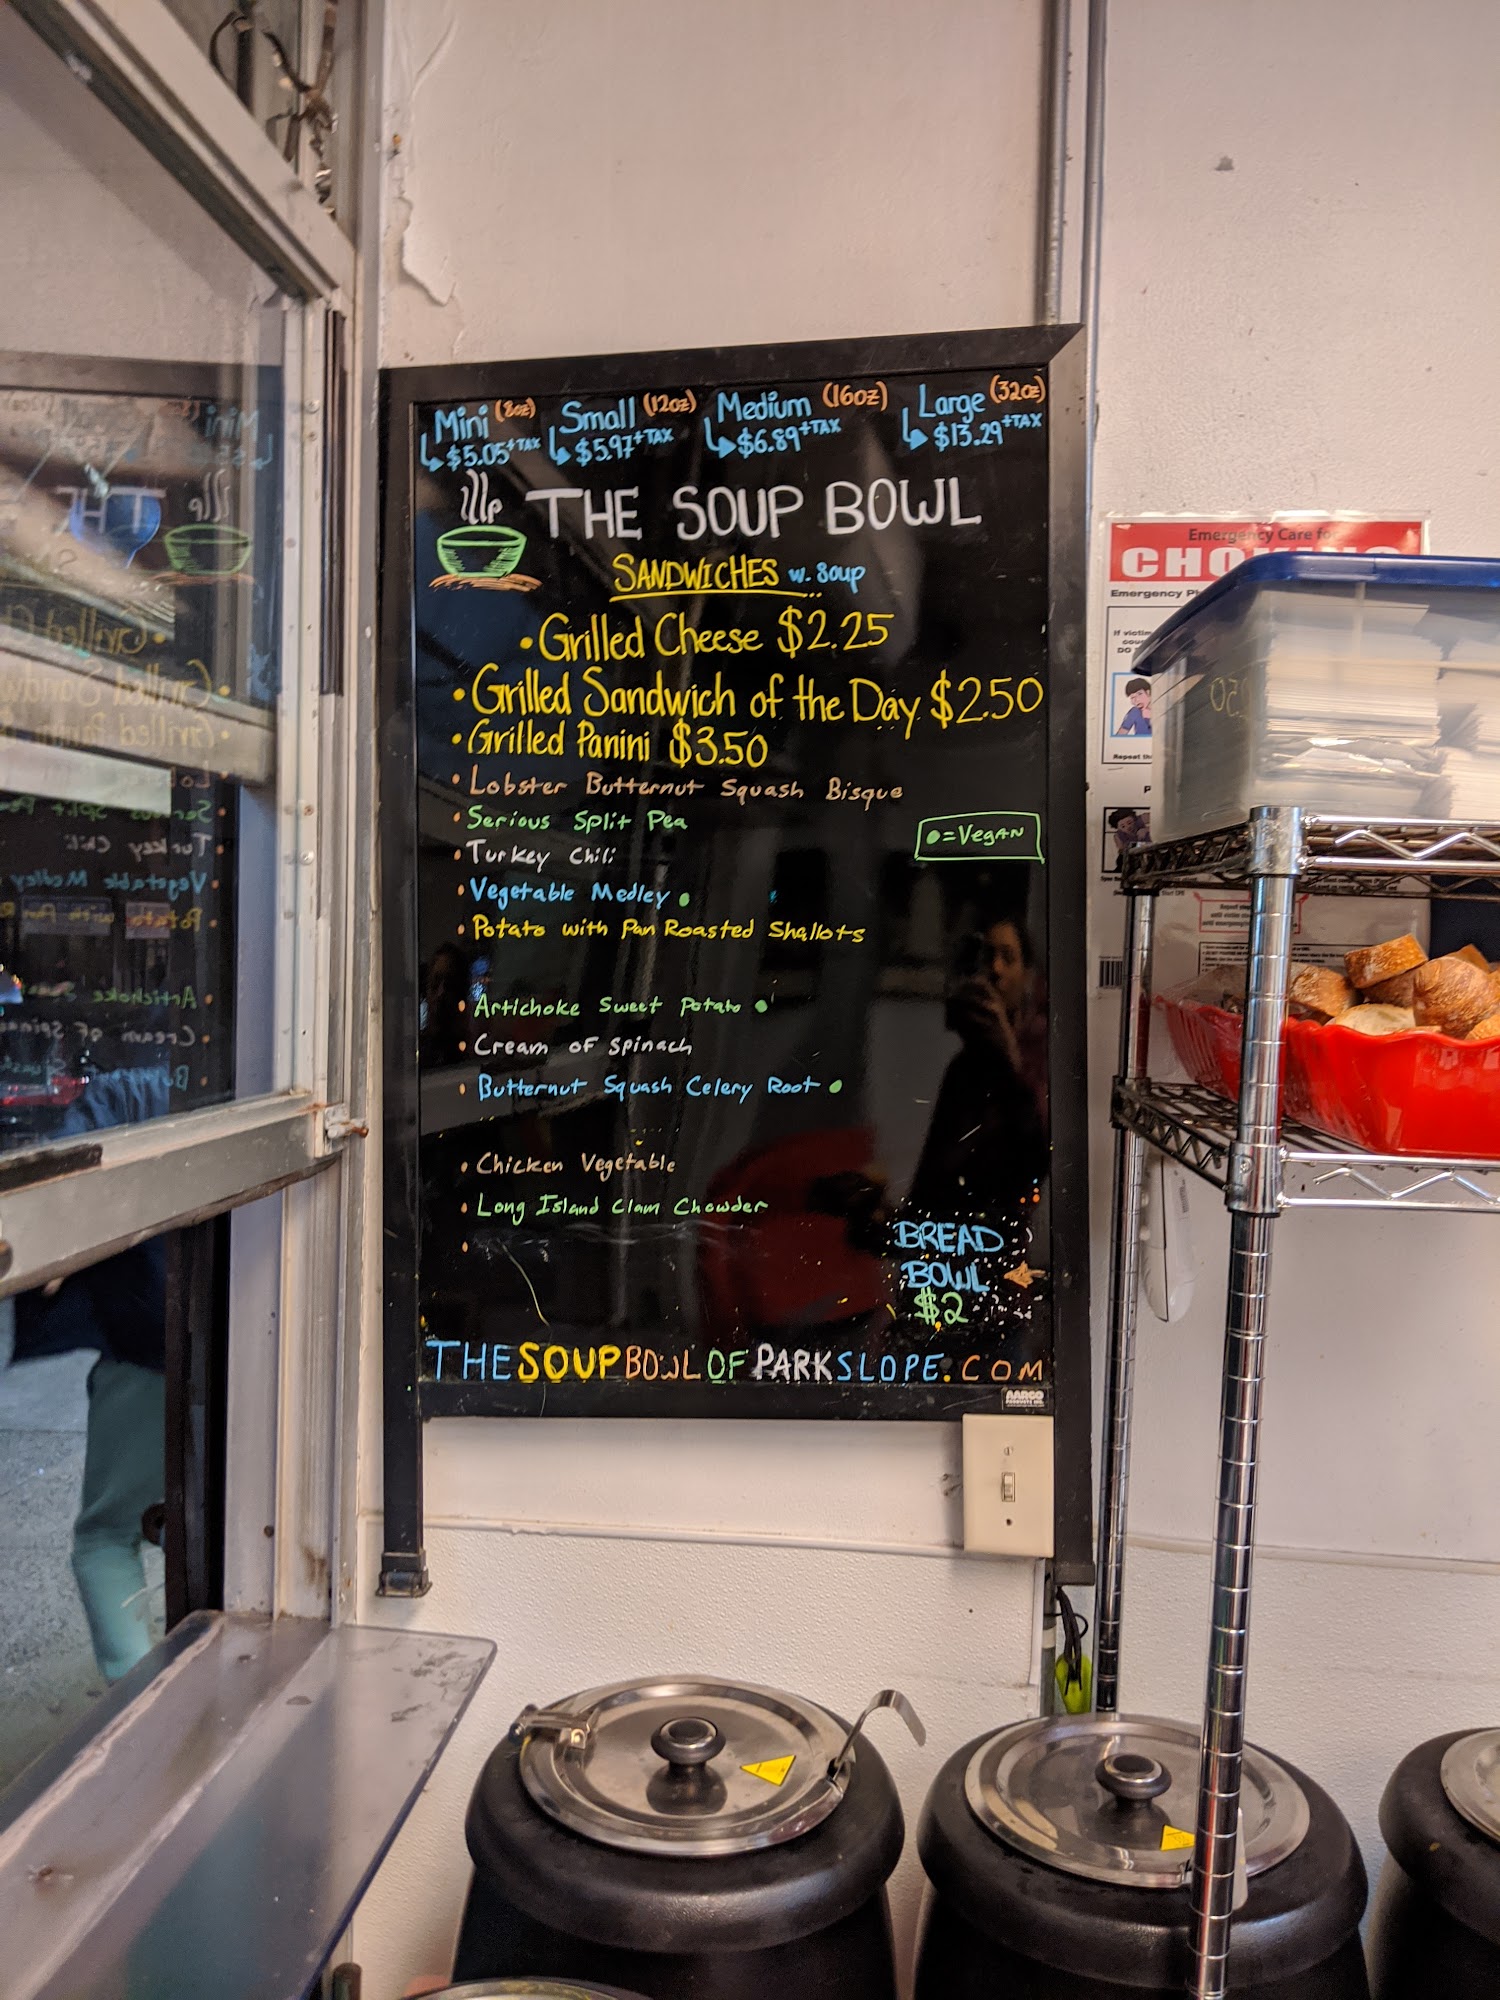 Mini (8oz) Small (12oz) Medium (16oz) Large (32oz)
$5.05+TAX $5.97+TAX $6.89+TAX $13.29+TAX
THE SOUP BOWL
SANDWICHES w. Soup
• Grilled Cheese $2.25
• Grilled Sandwich of the Day $2.50
• Grilled Panini $3.50
• Lobster Butternut Squash Bisque
• Serious Split Pea
• = Vegan
• Turkey Chili
• Vegetable Medley •
• Potato with Pan Roasted Shallots
• Artichoke Sweet Potato •
• Cream of Spinach
• Butternut Squash Celery Root •
• Chicken Vegetable
• Long Island Clam Chowder
BREAD
BOWL
$2
THESOUPBOWLOFPARKSLOPE.COM
AARCO
Emergency Care for
CHO
Emergency
If victim
DO
Repeat